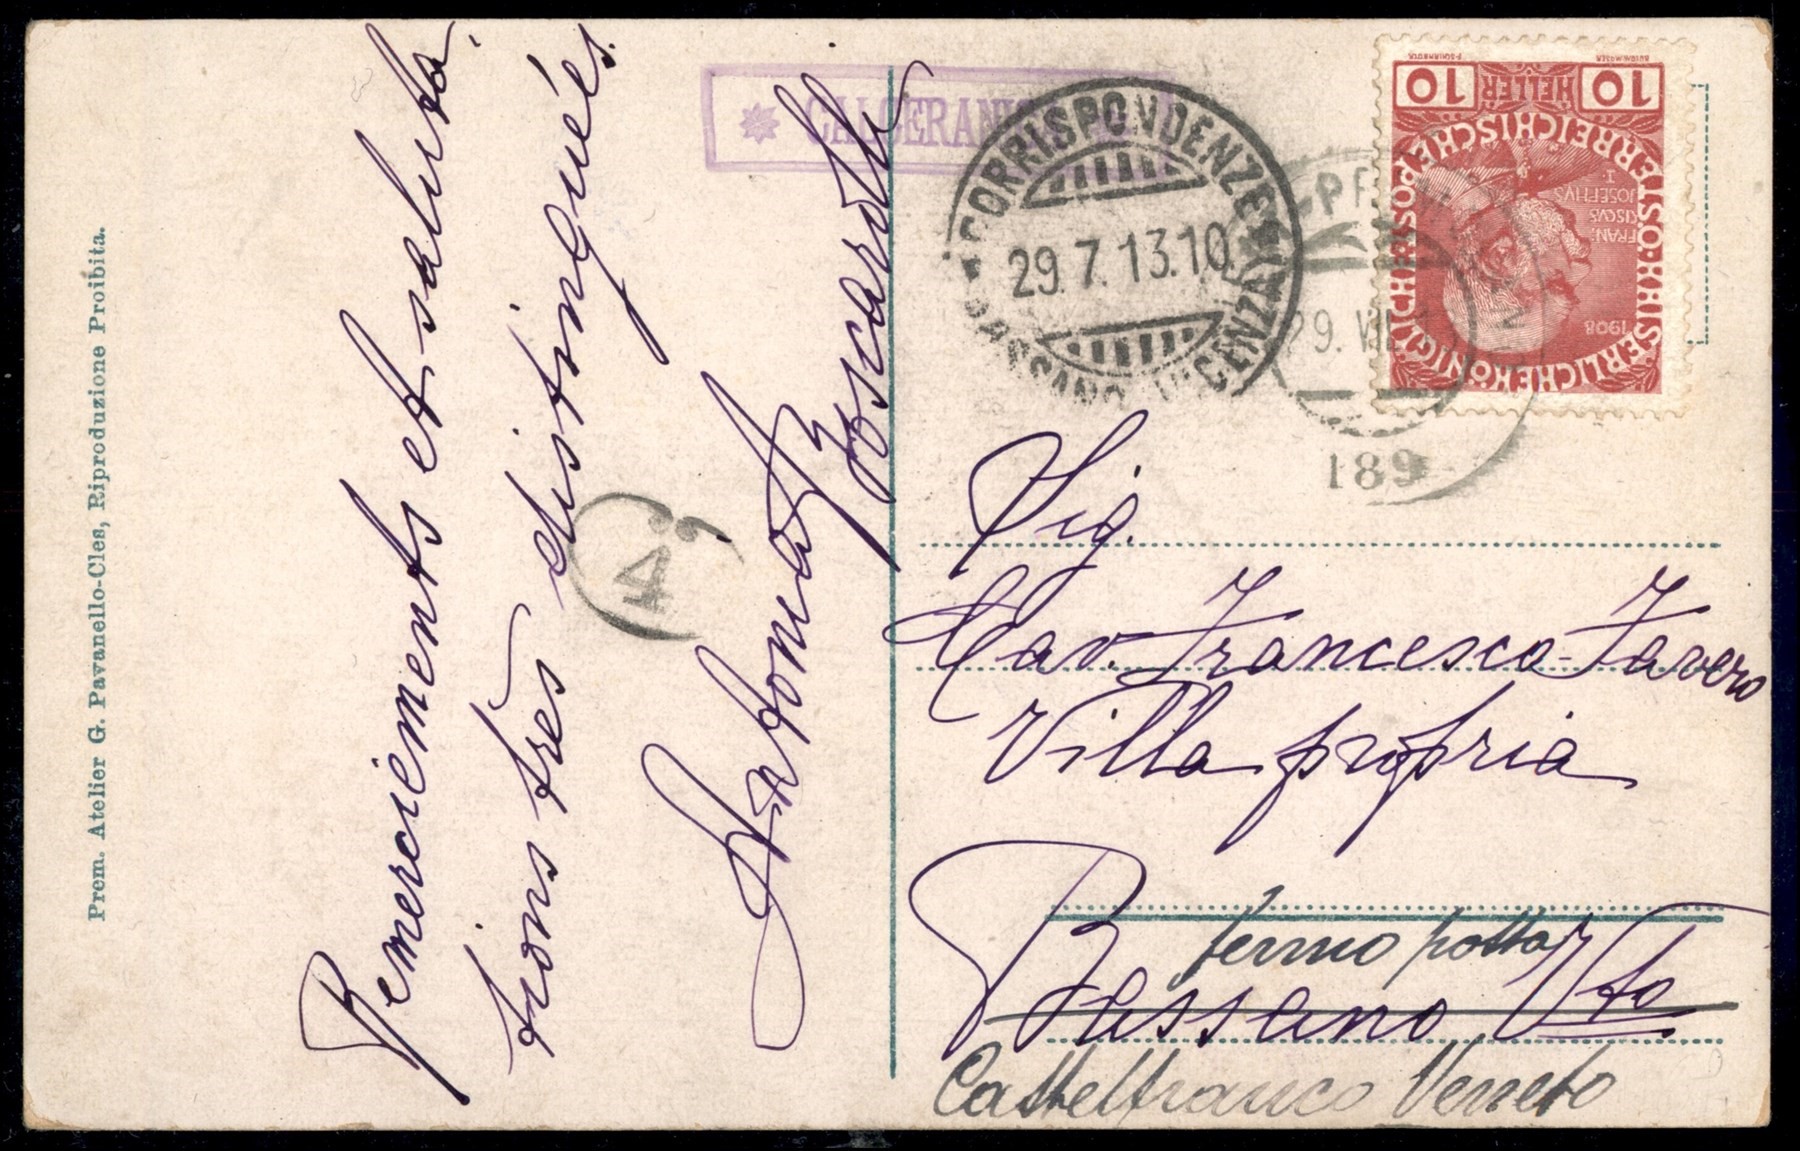 Prem. Atelier G. Pavanello-Cles, Riproduzione Proibita.
Remerciements et saluta-
tions très distinguées.
Antonia Boscarolli
CALCERANICA
CORRISPONDENZE
29.7.13.10
BASSANO VICENZA
29. VII
189
4
10 HELLER 10
KAISERLICHEKÖNIGLICHE
ÖSTERREICHISCHE POS
FRAN
CISCVS
JOSEPHVS
I
1908
Sig.
Cav. Francesco Favero
Villa propria
fermo posta
Bassano Vto
Castelfranco Veneto